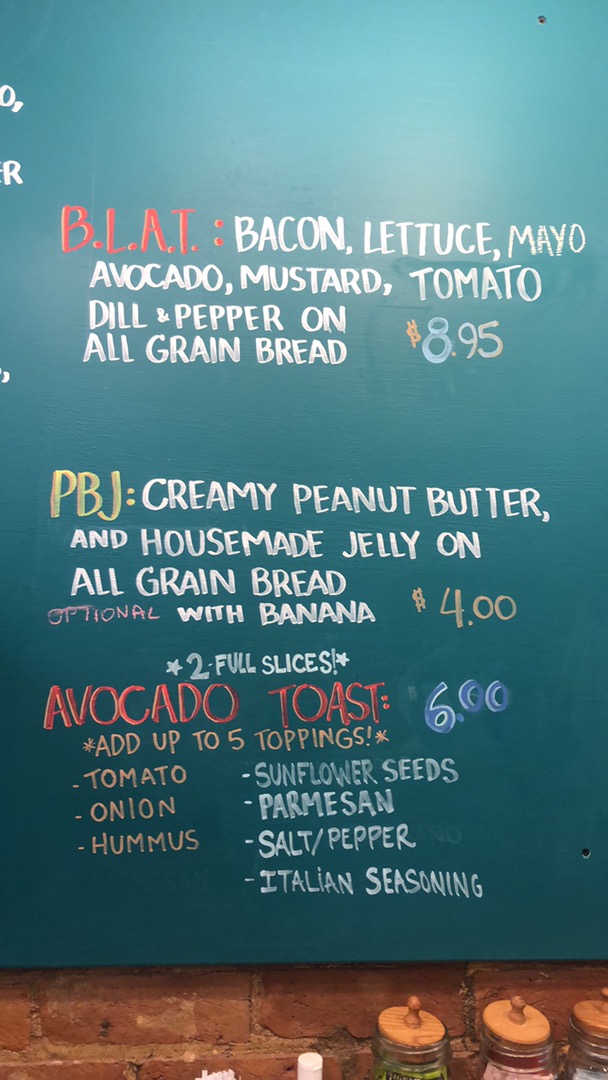 O,
ER
B.L.A.T.: BACON, LETTUCE, MAYO
AVOCADO, MUSTARD, TOMATO
DILL & PEPPER ON
ALL GRAIN BREAD $8.95
,
PBJ: CREAMY PEANUT BUTTER,
AND HOUSEMADE JELLY ON
ALL GRAIN BREAD
OPTIONAL WITH BANANA $4.00
*2-FULL SLICES!*
AVOCADO TOAST: 6.00
*ADD UP TO 5 TOPPINGS!*
- TOMATO - SUNFLOWER SEEDS
- ONION - PARMESAN
- HUMMUS - SALT/PEPPER
- ITALIAN SEASONING